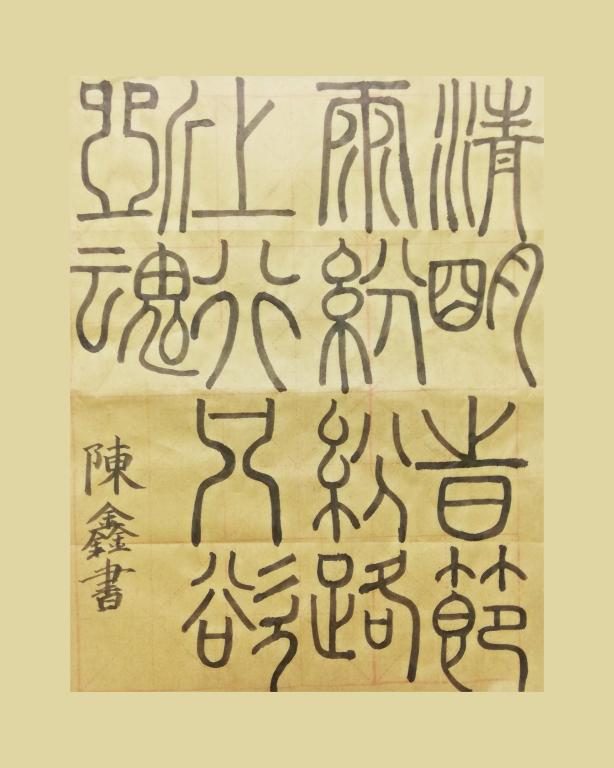 清明旹節
雨紛紛路
上行人欲
斷魂
陳鑫書